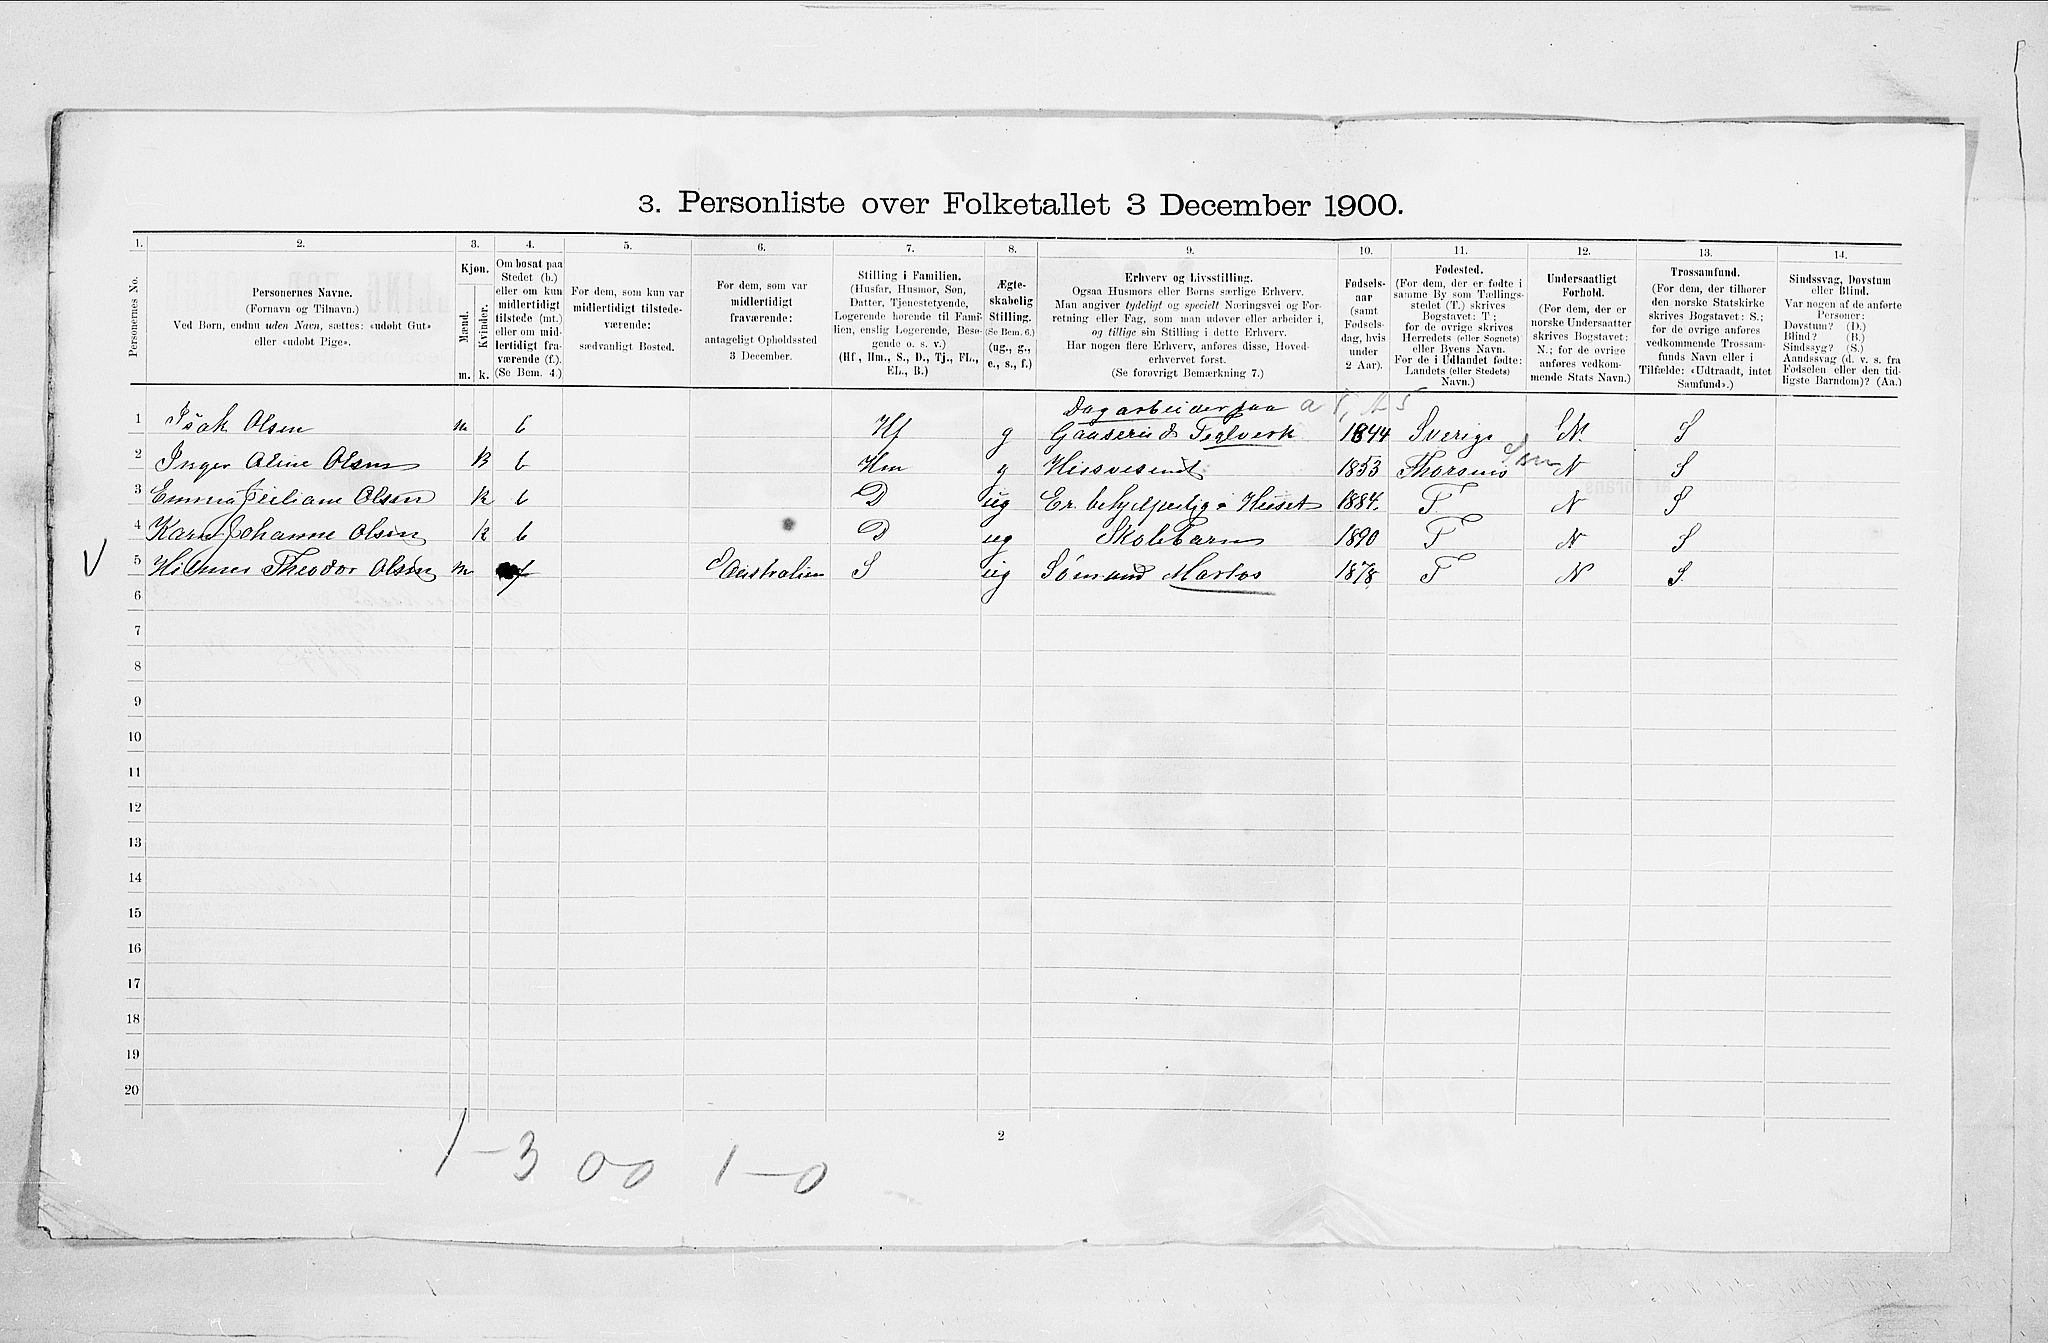 3. Personliste over Folketallet 3 December 1900.
1. 2. 3. 4. 5. 6. 7. 8. 9. 10. 11. 12. 13. 14.
Personernes No.
Personernes Navne.
(Fornavn og Tilnavn.)
Ved Børn, endnu uden Navn, sættes: «udøbt Gut»
eller «udøbt Pige».
Kjøn.
Mænd.
Kvinder.
m. k.
Om bosat paa
Stedet (b.)
eller om kun
midlertidigt
tilstede (mt.)
eller om mid-
lertidigt fra-
værende (f.).
(Se Bem. 4.)
For dem, som kun var
midlertidigt tilstede-
værende:
sædvanligt Bosted.
For dem, som var
midlertidigt
fraværende:
antageligt Opholdssted
3 December.
Stilling i Familien.
(Husfar, Husmor, Søn,
Datter, Tjenestetyende,
Logerende hørende til Fami-
lien, enslig Logerende, Besø-
gende o. s. v.)
(Hf., Hm., S., D., Tj., FL.,
EL., B.)
Ægte-
skabelig
Stilling.
(Se Bem. 6.)
(ug., g.,
e., s., f.)
Erhverv og Livsstilling.
Ogsaa Husmors eller Børns særlige Erhverv.
Man angiver tydeligt og specielt Næringsvei og For-
retning eller Fag, som man udøver eller arbeider i,
og tillige sin Stilling i dette Erhverv.
Har nogen flere Erhverv, anføres disse, Hoved-
erhvervet først.
(Se forøvrigt Bemærkning 7.)
Fødsels-
aar
(samt
Fødsels-
dag, hvis
under
2 Aar).
Fødested.
(For dem, der er fødte i
samme By som Tællings-
stedet (T.) skrives
Bogstavet: T.;
for de øvrige skrives
Herredets (eller Sognets)
eller Byens Navn.
For de i Udlandet fødte:
Landets (eller Stedets)
Navn.)
Undersaatligt
Forhold.
(For dem, der er
norske Undersaatter
skrives Bogstavet:
N.; for de øvrige
anføres vedkom-
mende Stats Navn.)
Trossamfund.
(For dem, der tilhører
den norske Statskirke
skrives Bogstavet: S.;
for de øvrige anføres
vedkommende Trossam-
funds Navn eller i
Tilfælde: «Udtraadt, intet
Samfund».)
Sindssvag, Døvstum
eller Blind.
Var nogen af de anførte
Personer:
Døvstum? (D.)
Blind? (B.)
Sindssyg? (S.)
Aandssvag (d. v. s. fra
Fødselen eller den tid-
ligste Barndom)? (Aa.)
Dagarbeider paa
1 Isak Olsen m b Hf g Gaaserud Teglverk 1844 Sverige N. S
2 Inger Oline Olsen K b Hm g Husvesenet 1853 Thorsnes N S
3 Emma Juliane Olsen K b D ug Er behjelpelig i Huset 1884. T N S
4 Karn Johanne Olsen K b D ug Skolebarn 1890 T N S
V 5 Hilmer Theodor Olsen m f Australien S ug Sømand Matros 1878. T N S.
6
7
8
9
10
11
12
13
14
15
16
17
18
19
20
2
1-3 00 1-0